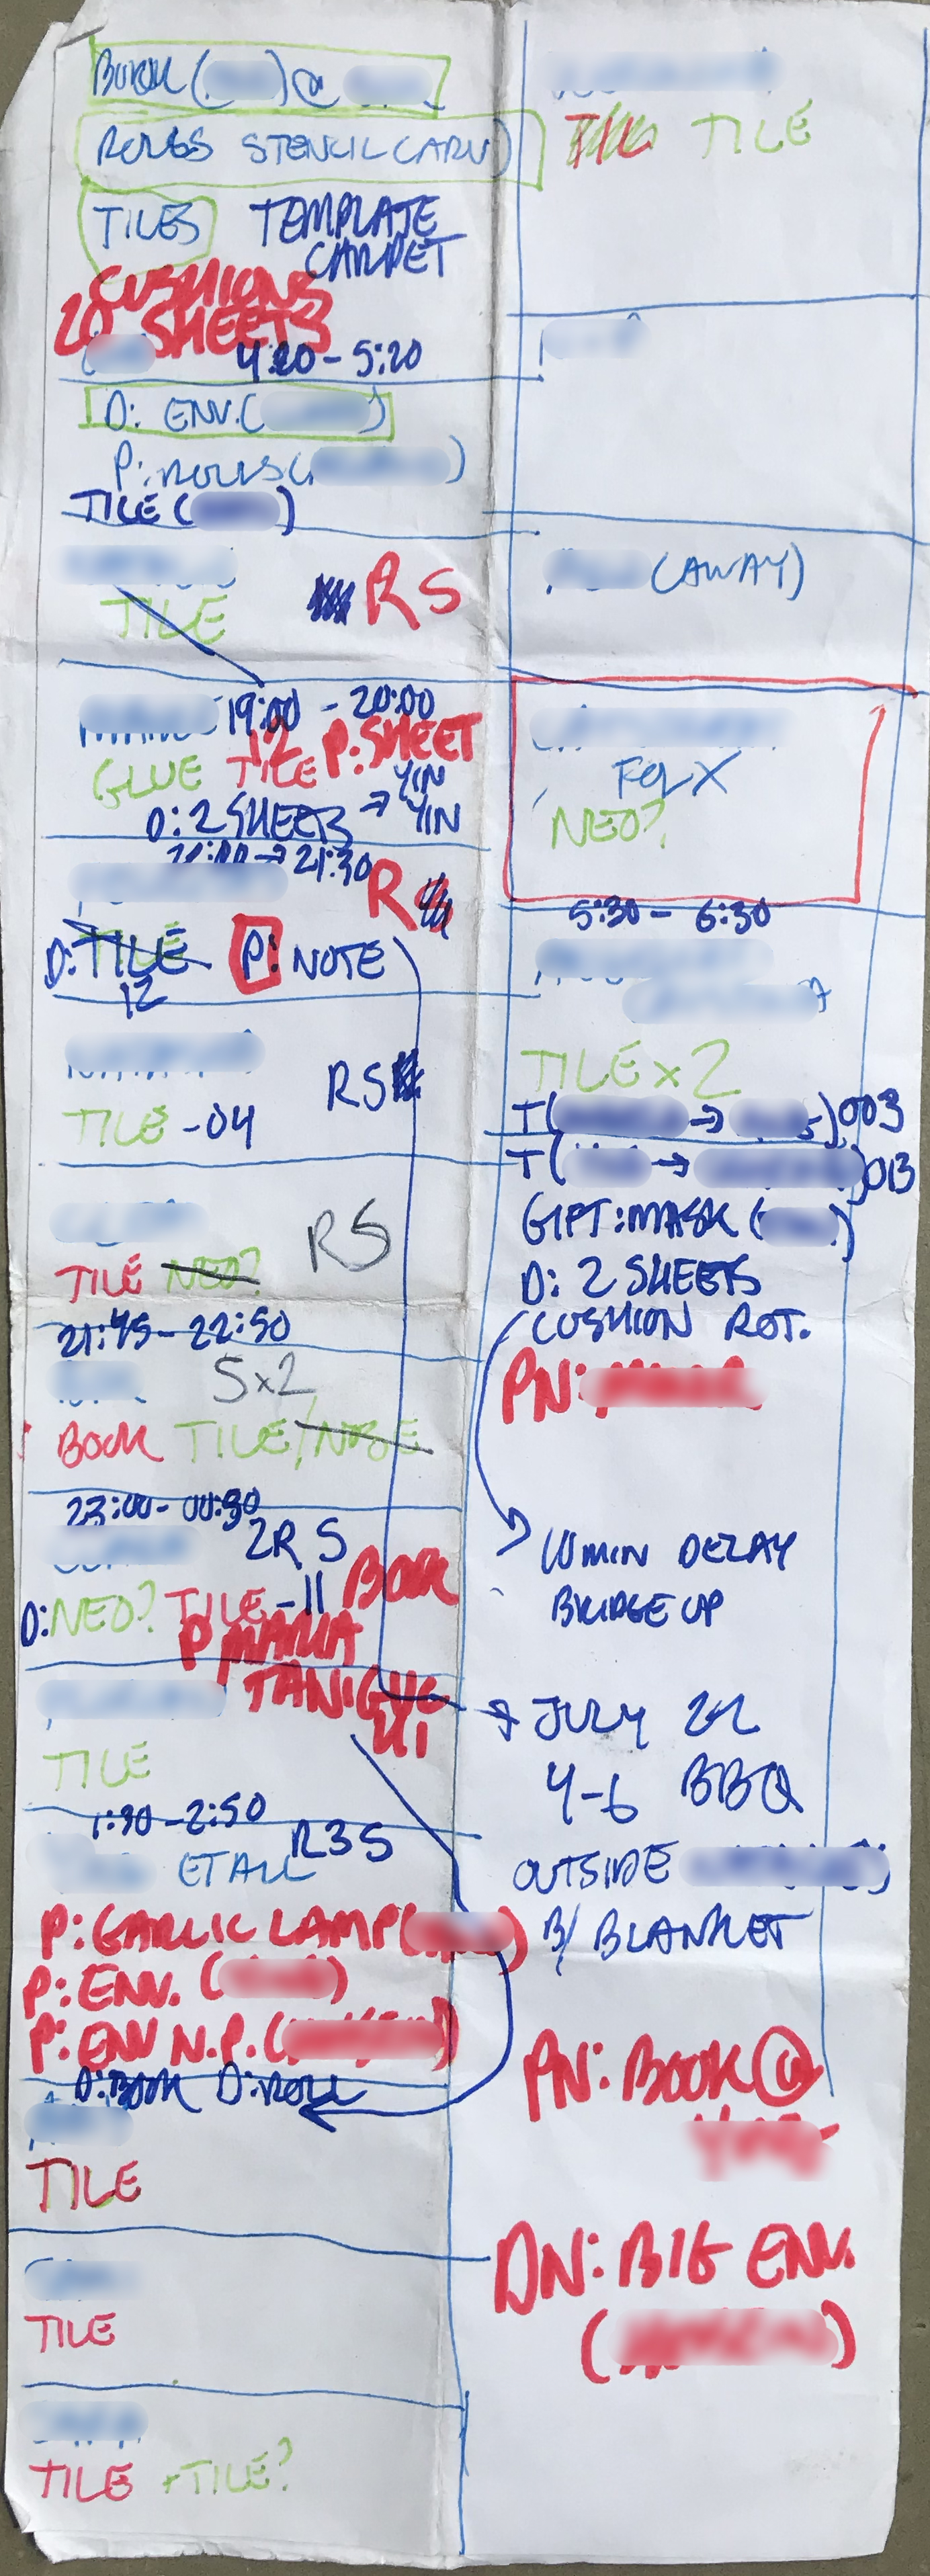 BOOK ( ) @
ROLLS STENCIL CARV)
TILES TEMPLATE
CARPET
CUSHIONS
20 SHEETS
4:20 - 5:20
D: ENV. ( )
P: ROLLS ( )
TILE ( )
RS
TILE
19:00 - 20:00
12 P: SHEET
GLUE TILE YIN
D: 2 SHEETS → YIN
→ 21:30
R
D: TILE P: NOTE
12
RS
TILE -04
RS
TILE NEO?
21:45 - 22:50
S x 2
BOOK TILE /
23:00 - 00:30
2RS
BOOK
D: NEO? TILE -11
P MARIA
TANIGUC
HI
TILE
1:30 - 2:50
R3S
ET ALL
P: GARLIC LAMP ( )
P: ENV. ( )
P: ENV N.P. ( )
D: BOOK D: ROLL
TILE
TILE
TILE + TILE?
TIL TILE
(AWAY)
NEO?
5:30 - 6:30
TILE x 2
T ( → ) 003
T ( → ) 013
GIFT: MASK ( )
D: 2 SHEETS
CUSHION ROT.
PN:
10 MIN DELAY
BRIDGE UP
→ JULY 22
4-6 BBQ
OUTSIDE
B/ BLANKET
PN: BOOK @
DN: BIG ENV.
( )